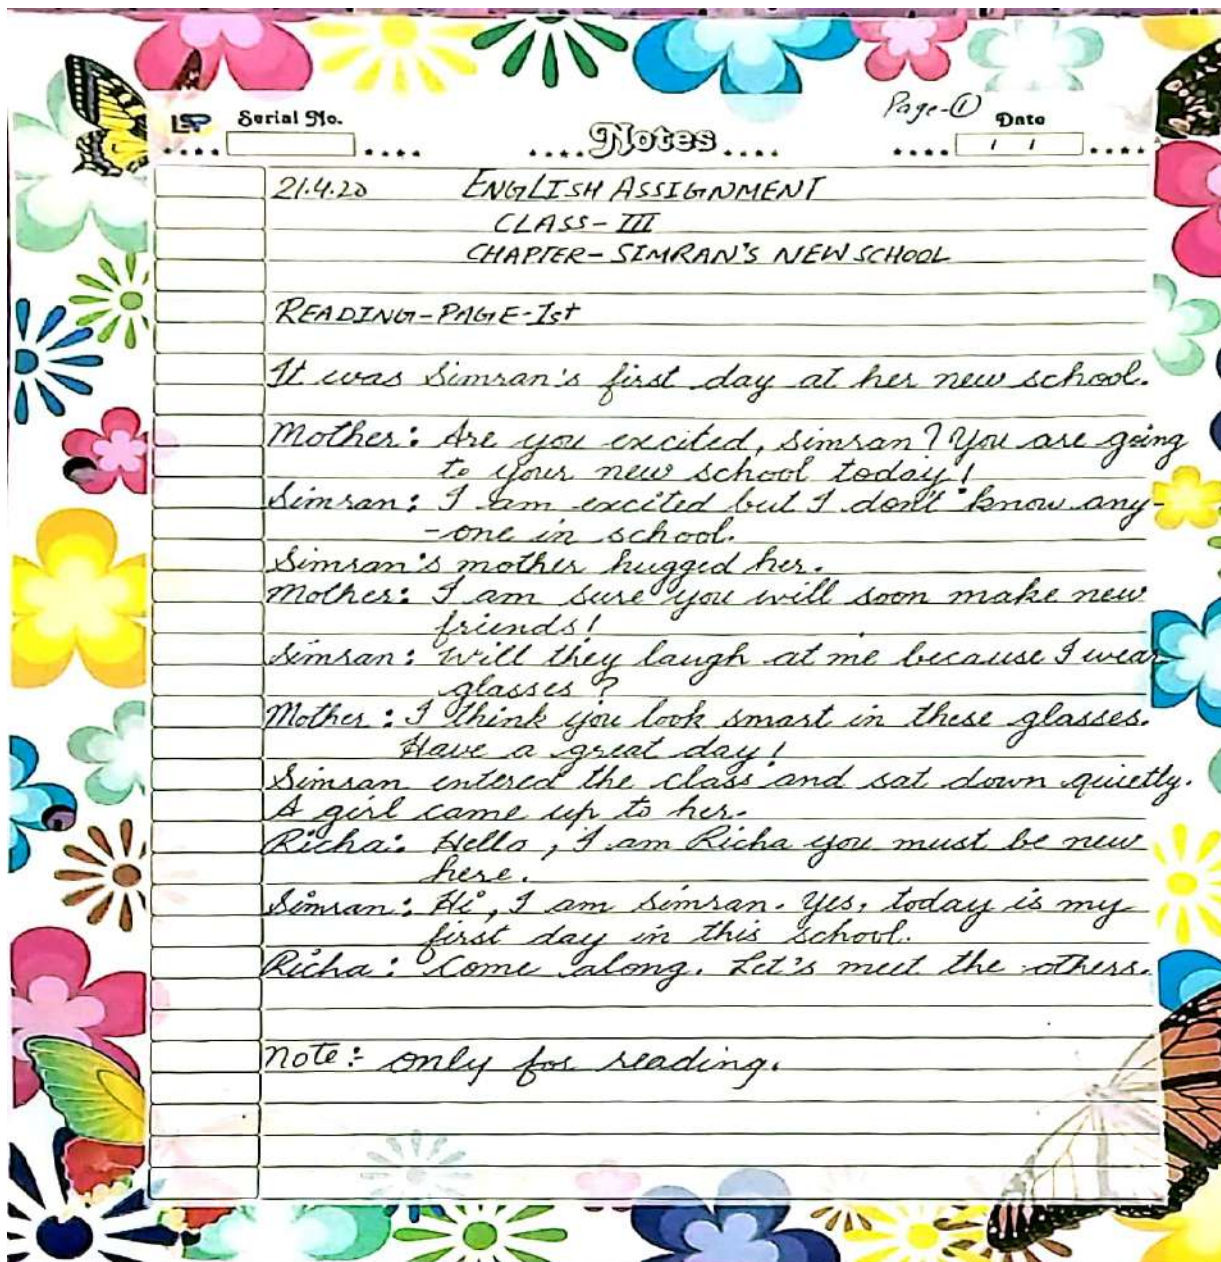 Page-①
LSP Serial No. Notes Date
21.4.20 ENGLISH ASSIGNMENT
CLASS-III
CHAPTER-SIMRAN'S NEW SCHOOL
READING-PAGE-1st
It was Simran's first day at her new school.
Mother: Are you excited, Simran? You are going
to your new school today!
Simran: I am excited but I don't know any-
-one in school.
Simran's mother hugged her.
Mother: I am sure you will soon make new
friends!
Simran: Will they laugh at me because I wear
glasses?
Mother: I think you look smart in these glasses.
Have a great day!
Simran entered the class and sat down quietly.
A girl came up to her.
Richa: Hello, I am Richa you must be new
here.
Simran: Hi, I am Simran. Yes, today is my
first day in this school.
Richa: Come along. Let's meet the others.
Note:- only for reading.